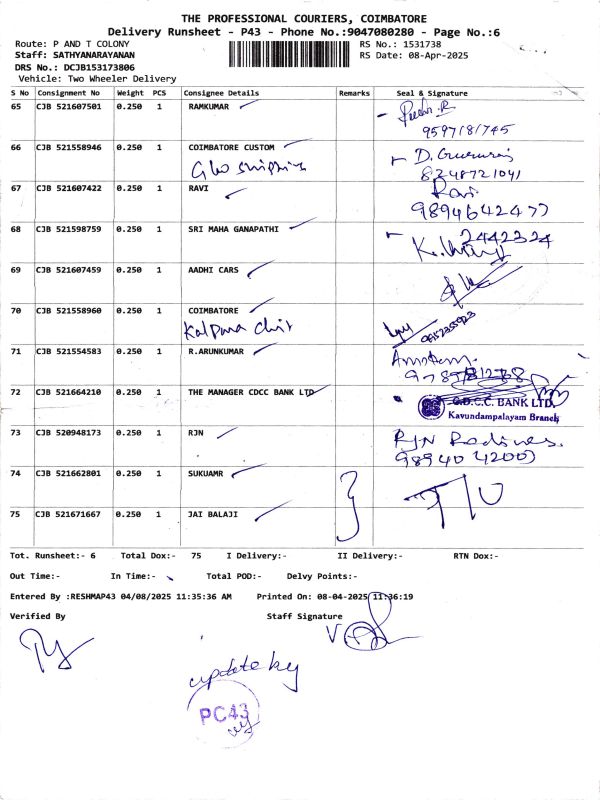 THE PROFESSIONAL COURIERS, COIMBATORE
Delivery Runsheet - P43 - Phone No.:9047080280 - Page No.:6
Route: P AND T COLONY RS No.: 1531738
Staff: SATHYANARAYANAN RS Date: 08-Apr-2025
DRS No.: DCJB153173806
Vehicle: Two Wheeler Delivery
S No Consignment No Weight PCS Consignee Details Remarks Seal & Signature
65 CJB 521607501 0.250 1 RAMKUMAR
9597181745
66 CJB 521558946 0.250 1 COIMBATORE CUSTOM
8248721041
67 CJB 521607422 0.250 1 RAVI Ravi
9894642477
68 CJB 521598759 0.250 1 SRI MAHA GANAPATHI 2442324
69 CJB 521607459 0.250 1 AADHI CARS
70 CJB 521558960 0.250 1 COIMBATORE
Kalpana Chit
71 CJB 521554583 0.250 1 R.ARUNKUMAR
72 CJB 521664210 0.250 1 THE MANAGER CDCC BANK LTD
C.D.C.C. BANK LTD.
Kavundampalayam Branch
73 CJB 520948173 0.250 1 RJN RJN
9894042009
74 CJB 521662801 0.250 1 SUKUAMR
75 CJB 521671667 0.250 1 JAI BALAJI
Tot. Runsheet:- 6 Total Dox:- 75 I Delivery:- II Delivery:- RTN Dox:-
Out Time:- In Time:- Total POD:- Delvy Points:-
Entered By :RESHMAP43 04/08/2025 11:35:36 AM Printed On: 08-04-2025 11:36:19
Verified By Staff Signature
update by
PC43